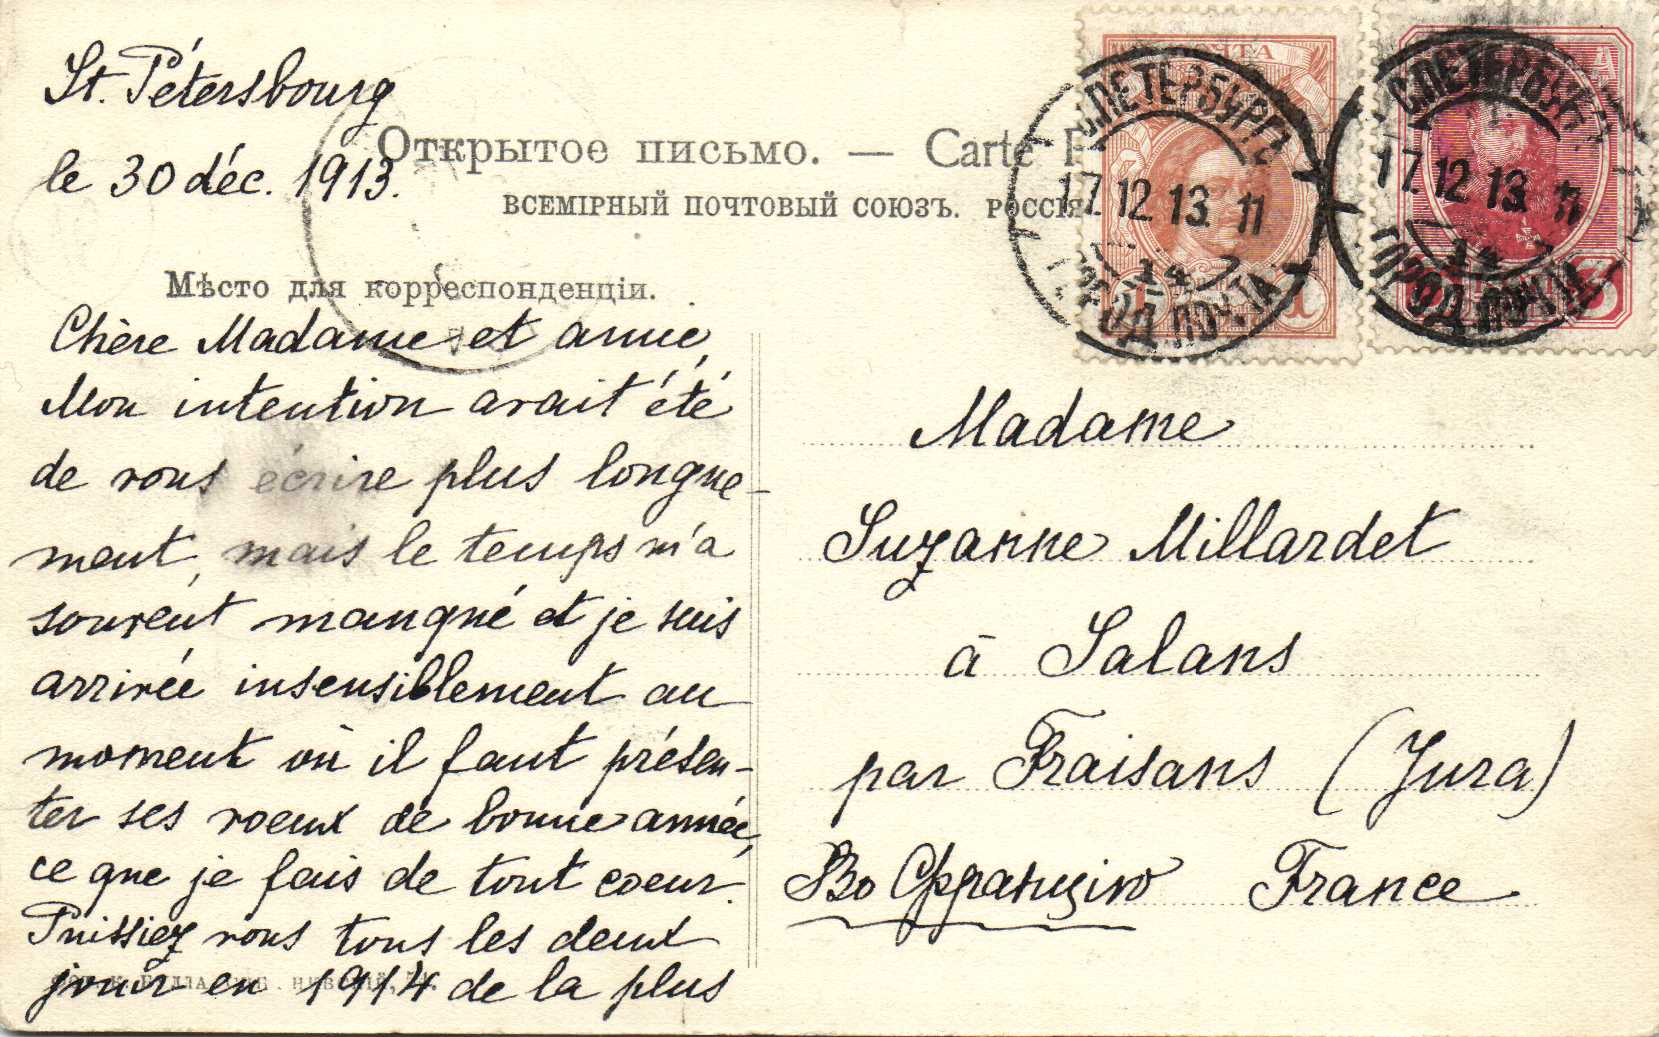 St. Pétersbourg
le 30 déc. 1913.
Открытое письмо. — Carte
ВСЕМІРНЫЙ ПОЧТОВЫЙ СОЮЗЪ. РОССІЯ
Мѣсто для корреспонденціи.
Chère Madame et amie,
Mon intention avait été
de vous écrire plus longue-
ment, mais le temps m'a
souvent manqué et je suis
arrivée insensiblement au
moment où il faut présen-
ter ses voeux de bonne année,
ce que je fais de tout coeur.
Puissiez vous tous les deux
jouir en 1914 de la plus
С.ПЕТЕРБУРГЪ
17.12.13. 11
ГОРОД. ПОЧТА
1
С.ПЕТЕРБУРГЪ
17.12.13. 11
14
ГОРОД. ПОЧТА
3
Madame
Suzanne Millardet
à Salans
par Fraisans (Jura)
Во Францiю France